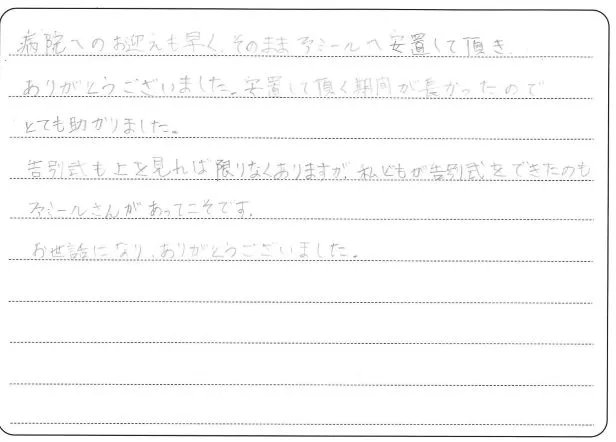 病院へのお迎えも早く、そのままファミールへ安置して頂き、
ありがとうございました。安置して頂く期間が長かったので
とても助かりました。
告別式も上を見れば限りなくありますが、私どもが告別式をできたのも
ファミールさんがあってこそです。
お世話になり、ありがとうございました。